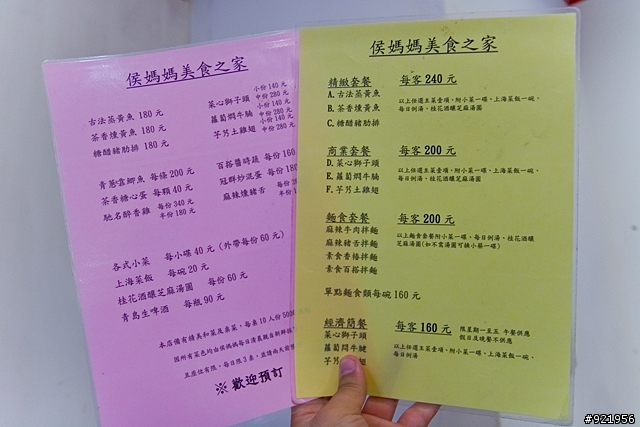 侯媽媽美食之家
古法蒸黃魚 180 元
茶香燻黃魚 180 元
糖醋豬肋排 180 元
菜心獅子頭 小份 140 元 中份 280 元
蘿蔔燜牛腩 小份 140 元 中份 280 元
芋艿土雞翅 小份 140 元 中份 280 元
青蔥雲鯽魚 每條 200 元
茶香糖心蛋 每顆 40 元
馳名醉香雞 每份 340 元 半份 180 元
百搭醬時蔬 每份 160
冠群炒泥蛋 每份 180
麻辣燻豬舌
各式小菜 每小碟 40 元 (外帶每份 60 元)
上海菜飯 每碗 20 元
桂花酒釀芝麻湯圓 每份 60 元
青島生啤酒 每瓶 90 元
本店備有精美和菜及桌菜，每桌 10 人份
※ 歡迎預訂
侯媽媽美食之家
精緻套餐 每客 240 元
A. 古法蒸黃魚
B. 茶香燻黃魚
C. 糖醋豬肋排
以上任選主菜壹項，附小菜一碟，上海菜飯一碗，
每日例湯，桂花酒釀芝麻湯圓
商業套餐 每客 200 元
D. 菜心獅子頭
E. 蘿蔔燜牛腩
F. 芋艿土雞翅
以上任選主菜壹項，附小菜一碟，上海菜飯一碗，
每日例湯，桂花酒釀芝麻湯圓
麵食套餐 每客 200 元
麻辣牛肉拌麵
麻辣豬舌拌麵
素食香椿拌麵
素食百搭拌麵
以上麵食套餐附小菜一碟，每日例湯，桂花酒釀
芝麻湯圓(如不需湯圓可換小菜一碟)
單點麵食類每碗 160 元
經濟簡餐 每客 160 元 限星期一至五 午餐供應
假日及晚餐不供應
菜心獅子頭
蘿蔔燜牛腱
芋艿 雞翅
以上任選主菜壹項，附小菜一碟，上海菜飯一碗，
每日例湯
#921956